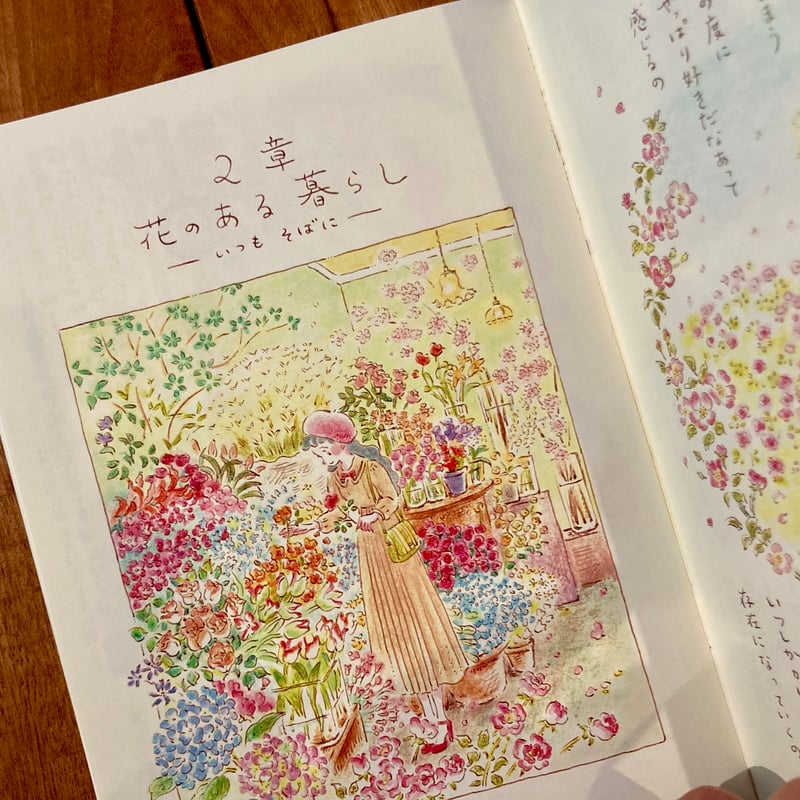 2章
花のある暮らし
― いつも そばに ―
まう
の度に
やっぱり好きだなあって
感じるの
いつしかか
存在になっていくの